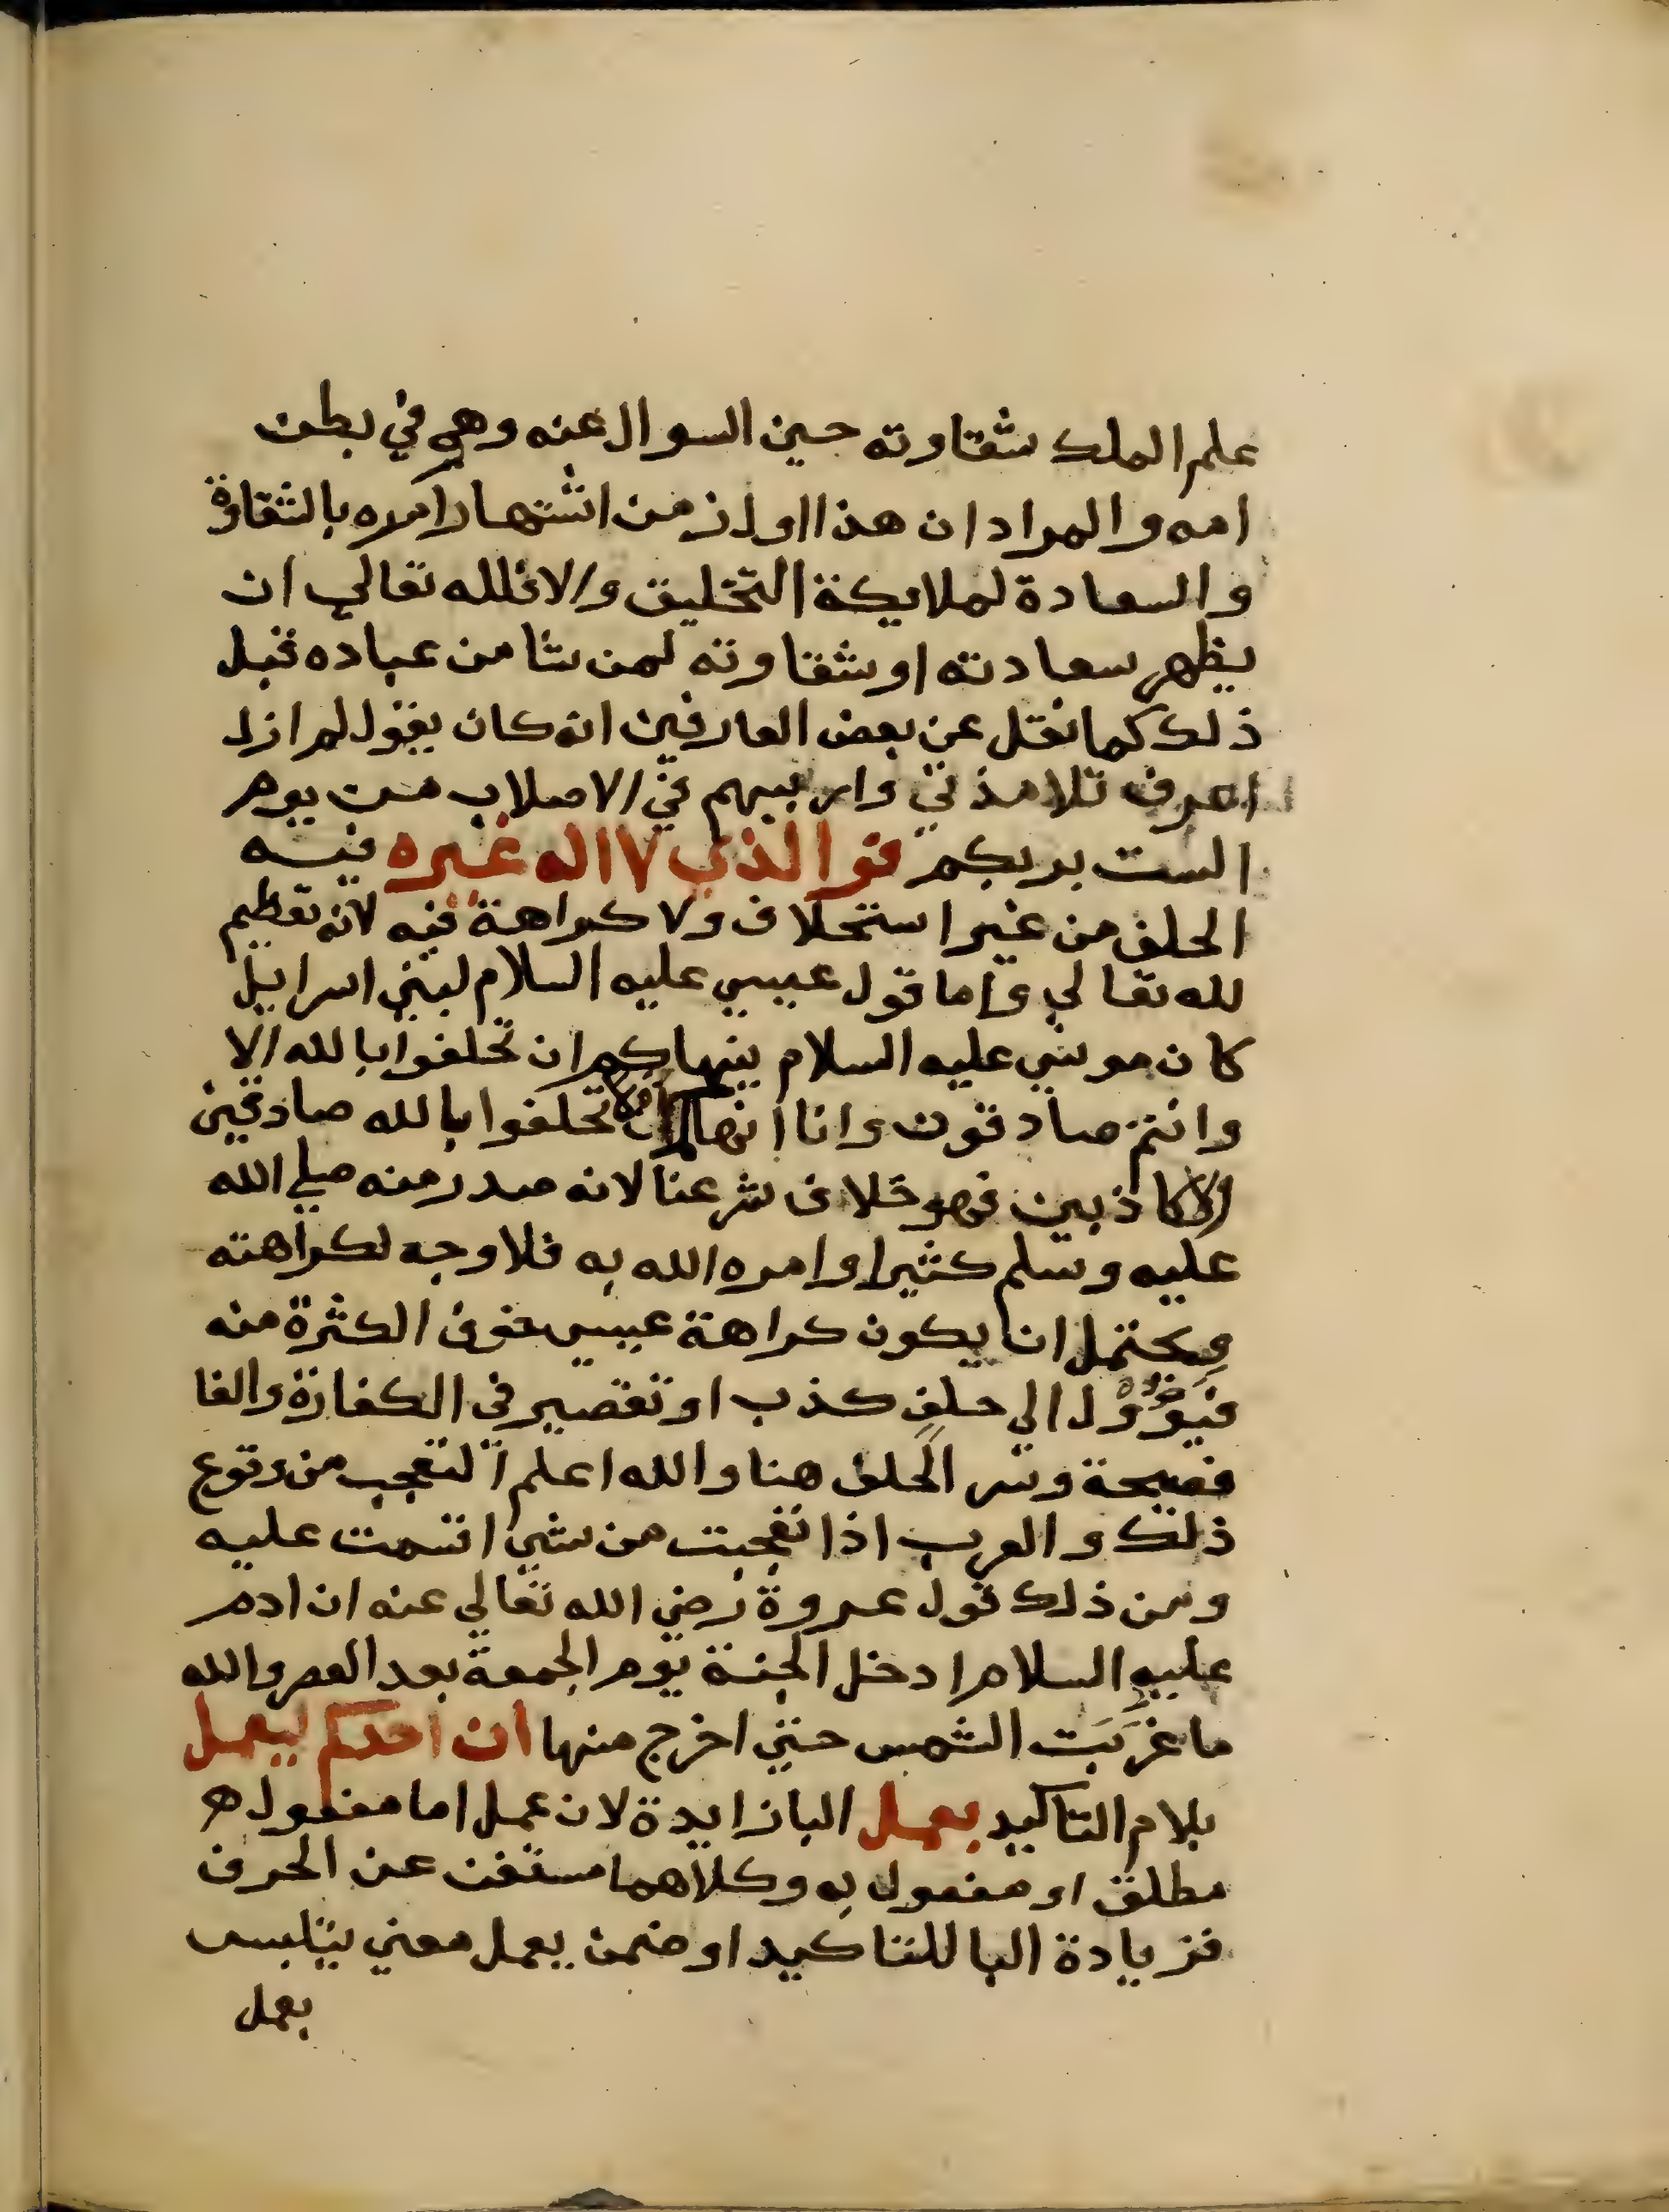 علم الملك شقاوته حين السوال عنه وهي في بطن
امه والمراد ان هذا اول زمن اشتهار امره بالشقاوة
والسعادة لملايكة التخليق والا فلله تعالي ان
يظهر سعادته او شقاوته لمن شا من عباده قبل
ذلك كما نقل عن بعض العارفين انه كان يقول لم ازل
اعرف تلامذتي واربيهم في الاصلاب من يوم
الست بربكم فوالذي لا اله غيره فيه
الحلف من غير استحلاف ولا كراهة فيه لانه تعظيم
لله تعالي واما قول عيسي عليه السلام لبني اسراييل
كان موسي عليه السلام ينهاكم ان تحلفوا بالله الا
وانتم صادقون وانا انهاكم ان لا تحلفوا بالله صادقين
او كاذبين فهو خلاف شرعنا لانه صدر منه صلي الله
عليه وسلم كثيرا وامره الله به فلا وجه لكراهته
ويحتمل ان يكون كراهة عيسي خوف الكثرة منه
فيؤول الي حلف كذب او تقصير في الكفارة والفا
فصيحة وسر الحلف هنا والله اعلم التعجب من وقوع
ذلك والعرب اذا تعجبت من شي اقسمت عليه
ومن ذلك قول عروة رضي الله تعالي عنه ان ادم
عليه السلام ادخل الجنة يوم الجمعة بعد العصر والله
ما غربت الشمس حتي اخرج منها ان احدكم ليعمل
بلام التاكيد بعمل البا زايدة لان عمل اما مفعول ه
مطلق او مفعول به وكلاهما مستغن عن الحرف
فزيادة البا للتاكيد او ضمن يعمل معني يتلبس
بعمل